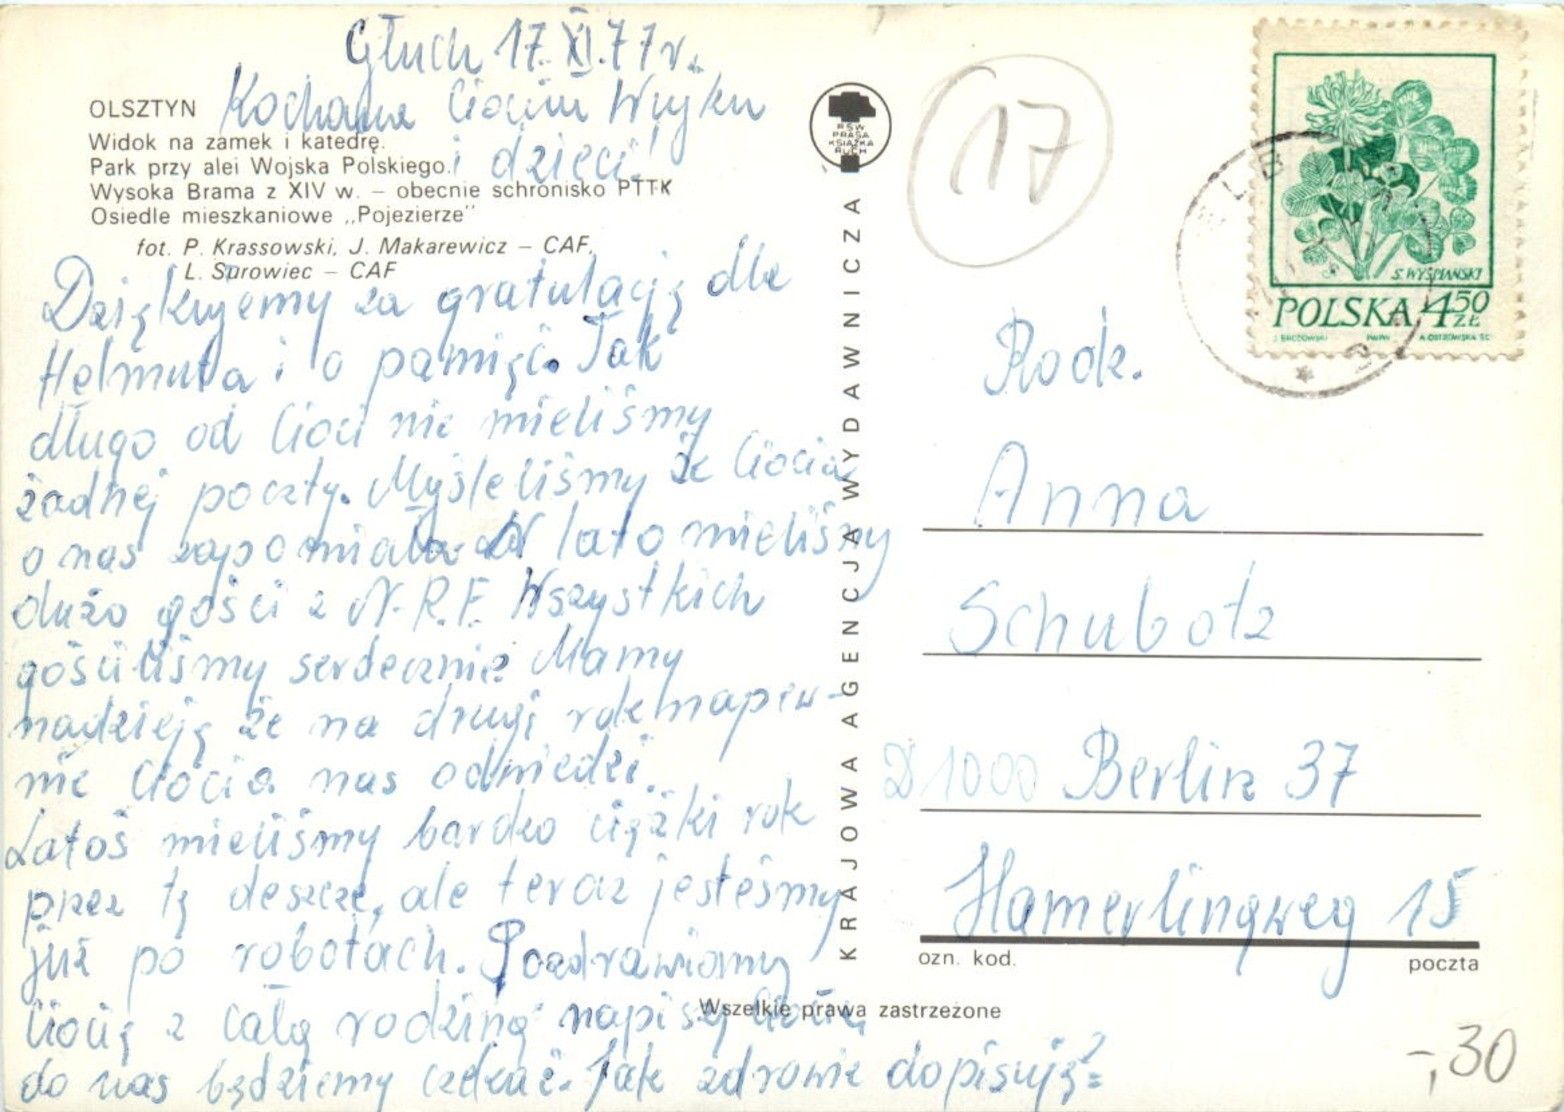 Głuch 17.XI.77r.
Kochana Ciociu Wujku
i dzieci!
OLSZTYN
Widok na zamek i katedrę.
Park przy alei Wojska Polskiego.
Wysoka Brama z XIV w. – obecnie schronisko PTTK
Osiedle mieszkaniowe „Pojezierze"
fot. P. Krassowski, J. Makarewicz – CAF,
L. Surowiec – CAF
Dziękujemy za gratulację dla
Helmuta i o pamięć. Tak
długo od Cioci nie mieliśmy
żadnej poczty. Myśleliśmy że Ciocia
o nas zapomniała W lato mieliśmy
dużo gości z N.R.F. Wszystkich
gościliśmy serdecznie Mamy
nadzieję że na drugi rok napew-
nie Ciocia nas odwiedzi.
Latoś mieliśmy bardzo ciężki rok
przez tę deszcze, ale teraz jesteśmy
już po robotach. Pozdrawiamy
Ciocię z całą rodziną napisz
do nas będziemy czekać. Jak zdrowie dopisuję?
KRAJOWA AGENCJA WYDAWNICZA
RSW
PRASA
KSIĄŻKA
RUCH
17
S. WYSPIAŃSKI
POLSKA 4.50 ZŁ
J. BRODOWSKI PWPW A. OSTROWSKA SC.
Rodz.
Anna
Schubotz
D 1000 Berlin 37
Hamerlingweg 15
ozn. kod.
poczta
Wszelkie prawa zastrzeżone
-,30